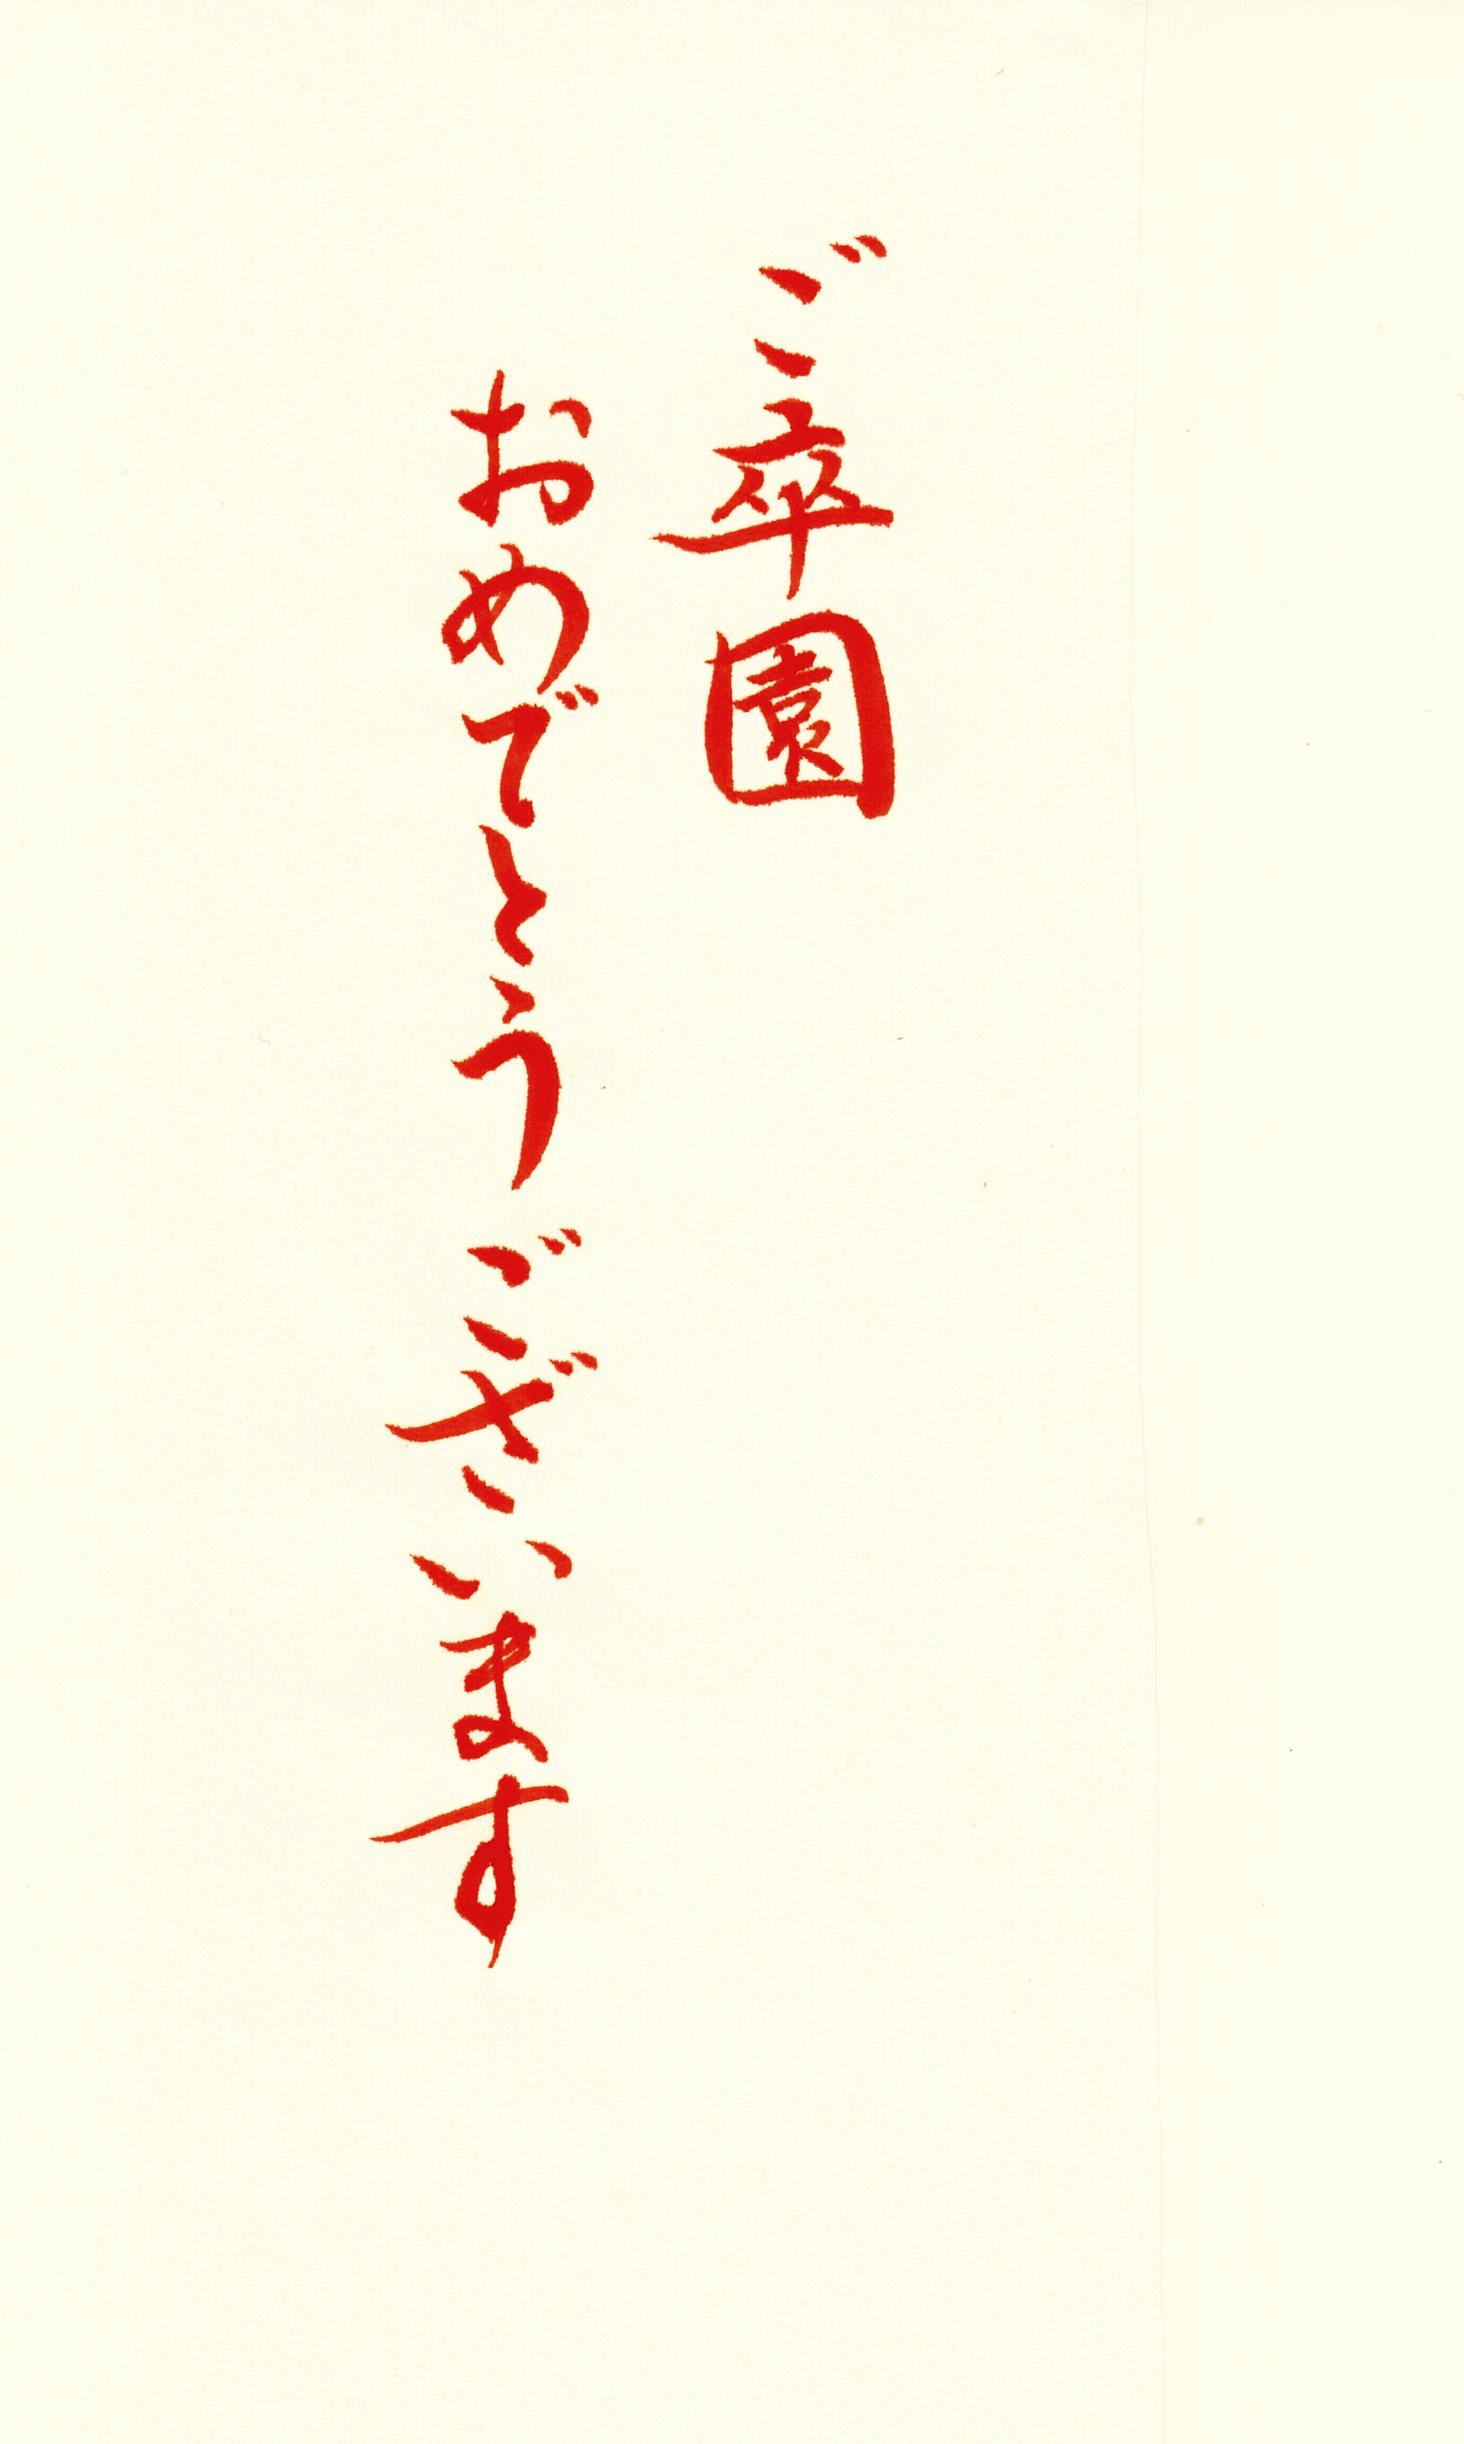 ご卒園
おめでとうございます